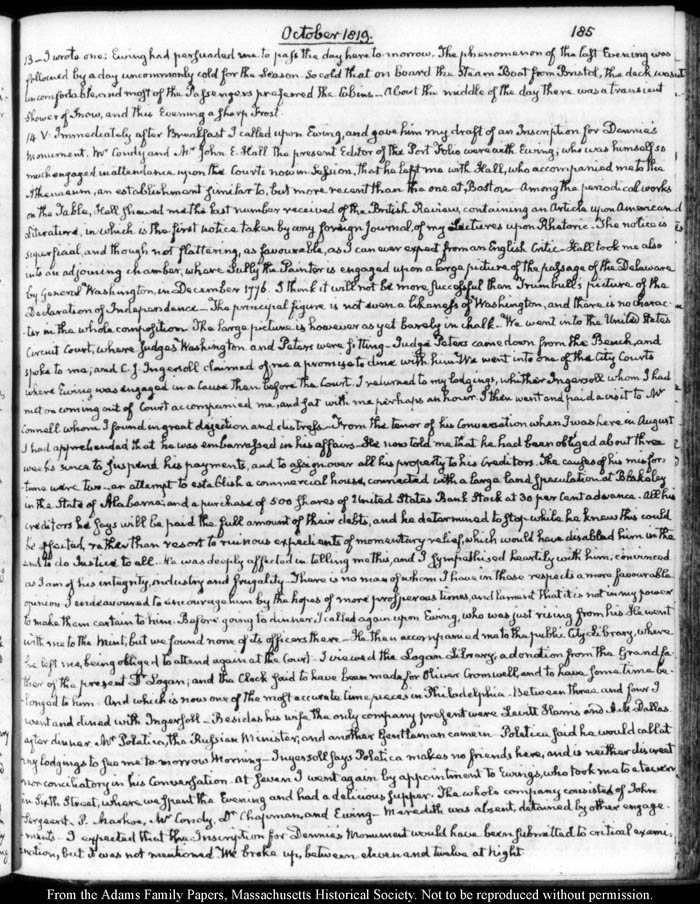 October 1819.
185
13 – I wrote one; Ewing had persuaded me to pass the day here to-morrow. The phenomenon of the last Evening was
followed by a day uncommonly cold for the Season. So cold that on board the Steam Boat from Bristol, the deck was
uncomfortable, and most of the Passengers preferred the Cabins – About the middle of the day there was a transient
Shower of Snow, and this Evening a sharp Frost.
14. V: Immediately after Breakfast I called upon Ewing, and gave him my draft of an Inscription for Dennie's
Monument. Mr Condy and Mr John E. Hall the present Editor of the Port Folio were with Ewing; who was himself so
much engaged in attendance upon the Courts now in Session, that he left me with Hall, who accompanied me to the
Athenaeum, an establishment similar to, but more recent than the one at Boston – Among the periodical works
on the Table, Hall showed me the last number received of the British Review, containing an Article upon American
Literature, in which is the first notice taken by any foreign Journal, of my Lectures upon Rhetoric – The notice is
superficial, and though not flattering, as favourable, as I can ever expect from an English Critic – Hall took me also
into an adjoining chamber, where Sully the Painter is engaged upon a large picture of the passage of the Delaware
by General Washington, in December 1776. I think it will not be more successful than Trumbull's picture of the
Declaration of Independence – The principal figure is not even a likeness of Washington, and there is no charac-
ter in the whole composition. The large picture is however as yet barely in chalk – We went into the United States
Circuit Court, where Judges Washington and Peters were sitting – Judge Peters came down from the Bench, and
spoke to me; and C. J. Ingersoll claimed of me a promise to dine with him. We went into one of the City Courts
where Ewing was engaged in a Cause then before the Court. I returned to my lodgings, whither Ingersoll whom I had
met on coming out of Court accompanied me, and sat with me perhaps an hour. I then went and paid a visit to Mr
Connell whom I found in great dejection and distress – From the tenor of his Conversation when I was here in August
I had apprehended that he was embarrassed in his affairs – He now told me that he had been obliged about three
weeks since to suspend his payments, and to assign over all his property to his Creditors. The causes of his misfor-
tune were two – an attempt to establish a commercial house, connected with a large land speculation at Blakeley
in the State of Alabama; and a purchase of 500 shares of United States Bank Stock at 30 per Cent advance. All his
creditors he says will be paid the full amount of their debts, and he determined to stop while he knew this could
be effected, rather than resort to ruinous expedients of momentary relief, which would have disabled him in the
end to do Justice to all – He was deeply affected in telling me this, and I sympathised heartily with him; convinced
as I am of his integrity, industry and frugality – There is no man of whom I have in those respects a more favourable
opinion. I endeavoured to encourage him by the hopes of more prosperous times, and lament that it is not in my power
to make them certain to him. Before going to dinner, I called again upon Ewing, who was just rising from his. He went
with me to the Mint, but we found none of its officers there – He then accompanied me to the public City-Library, where
he left me, being obliged to attend again at the Court. I viewed the Logan Library, a donation from the Grandfa-
ther of the present Dr Logan; and the Clock said to have been made for Oliver Cromwell, and to have some time be-
longed to him – And which is now one of the most accurate time pieces in Philadelphia – Between three and four I
went and dined with Ingersoll – Besides his wife the only company present were Levitt Harris and A. Dallas.
after dinner, Mr Poletica, the Russian Minister, and another Gentleman came in. Poletica said he would call at
my lodgings to see me to-morrow Morning – Ingersoll says Poletica makes no friends here, and is neither discreet
nor conciliatory in his Conversation. At seven I went again by appointment to Ewings, who took me to a tavern
in Sixth Street, where we spent the Evening and had a delicious supper. The whole company consisted of John
Sergeant, P. Markoe, Mr Condy, Dr Chapman, and Ewing – Meredith was absent, detained by other engage-
ments – I expected that the Inscription for Dennie's Monument would have been submitted to critical exami-
nation, but it was not mentioned. We broke up, between eleven and twelve at Night
From the Adams Family Papers, Massachusetts Historical Society. Not to be reproduced without permission.